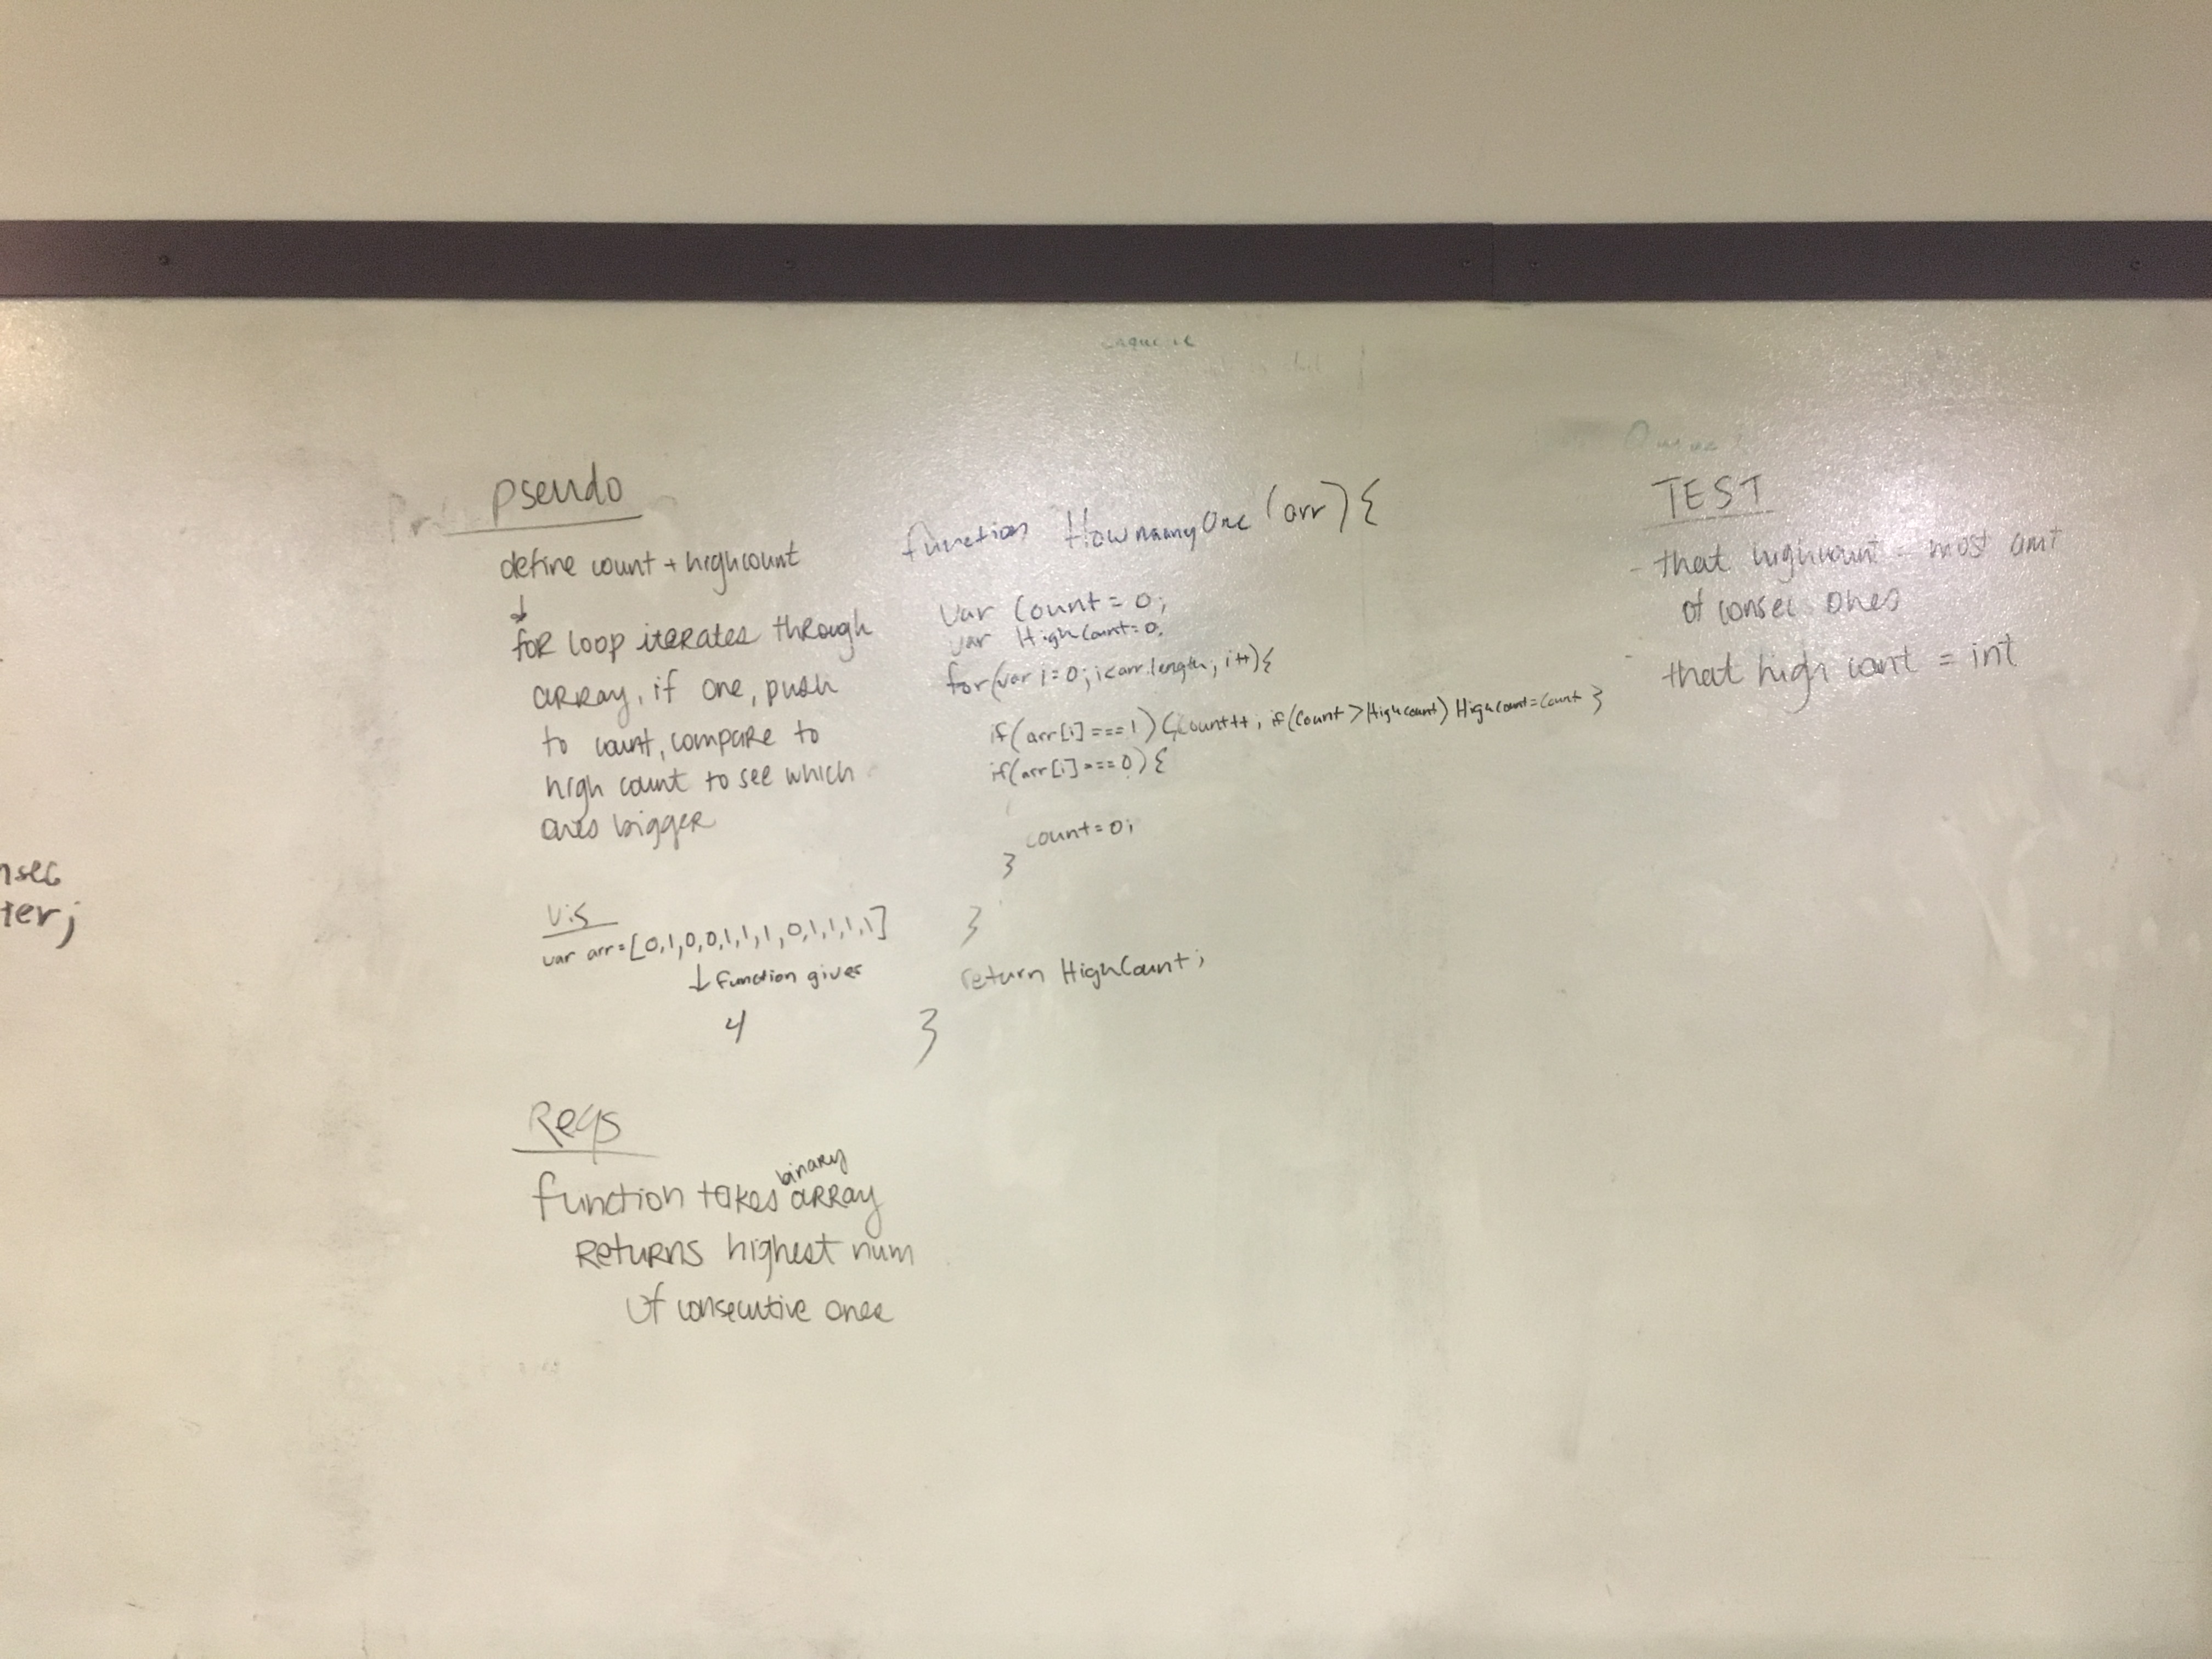 pseudo
define count + highcount
↓
for loop iterates through
array, if one, push
to count, compare to
high count to see which
ones bigger
Vis
var arr=[0,1,0,0,1,1,1,0,1,1,1,1]
↓ function gives
4
Reqs
function takes binary array
returns highest num
of consecutive ones
function HowmanyOne (arr) {
var Count = 0;
var HighCount=0;
for(var i=0; i<arr.length; i++){
if(arr[i]===1) {Count++; if(Count>HighCount) HighCount=Count }
if(arr[i]===0) {
count=0;
}
}
return HighCount;
}
TEST
- that highcount = most amt
of consec ones
- that high count = int
nsec
ter;